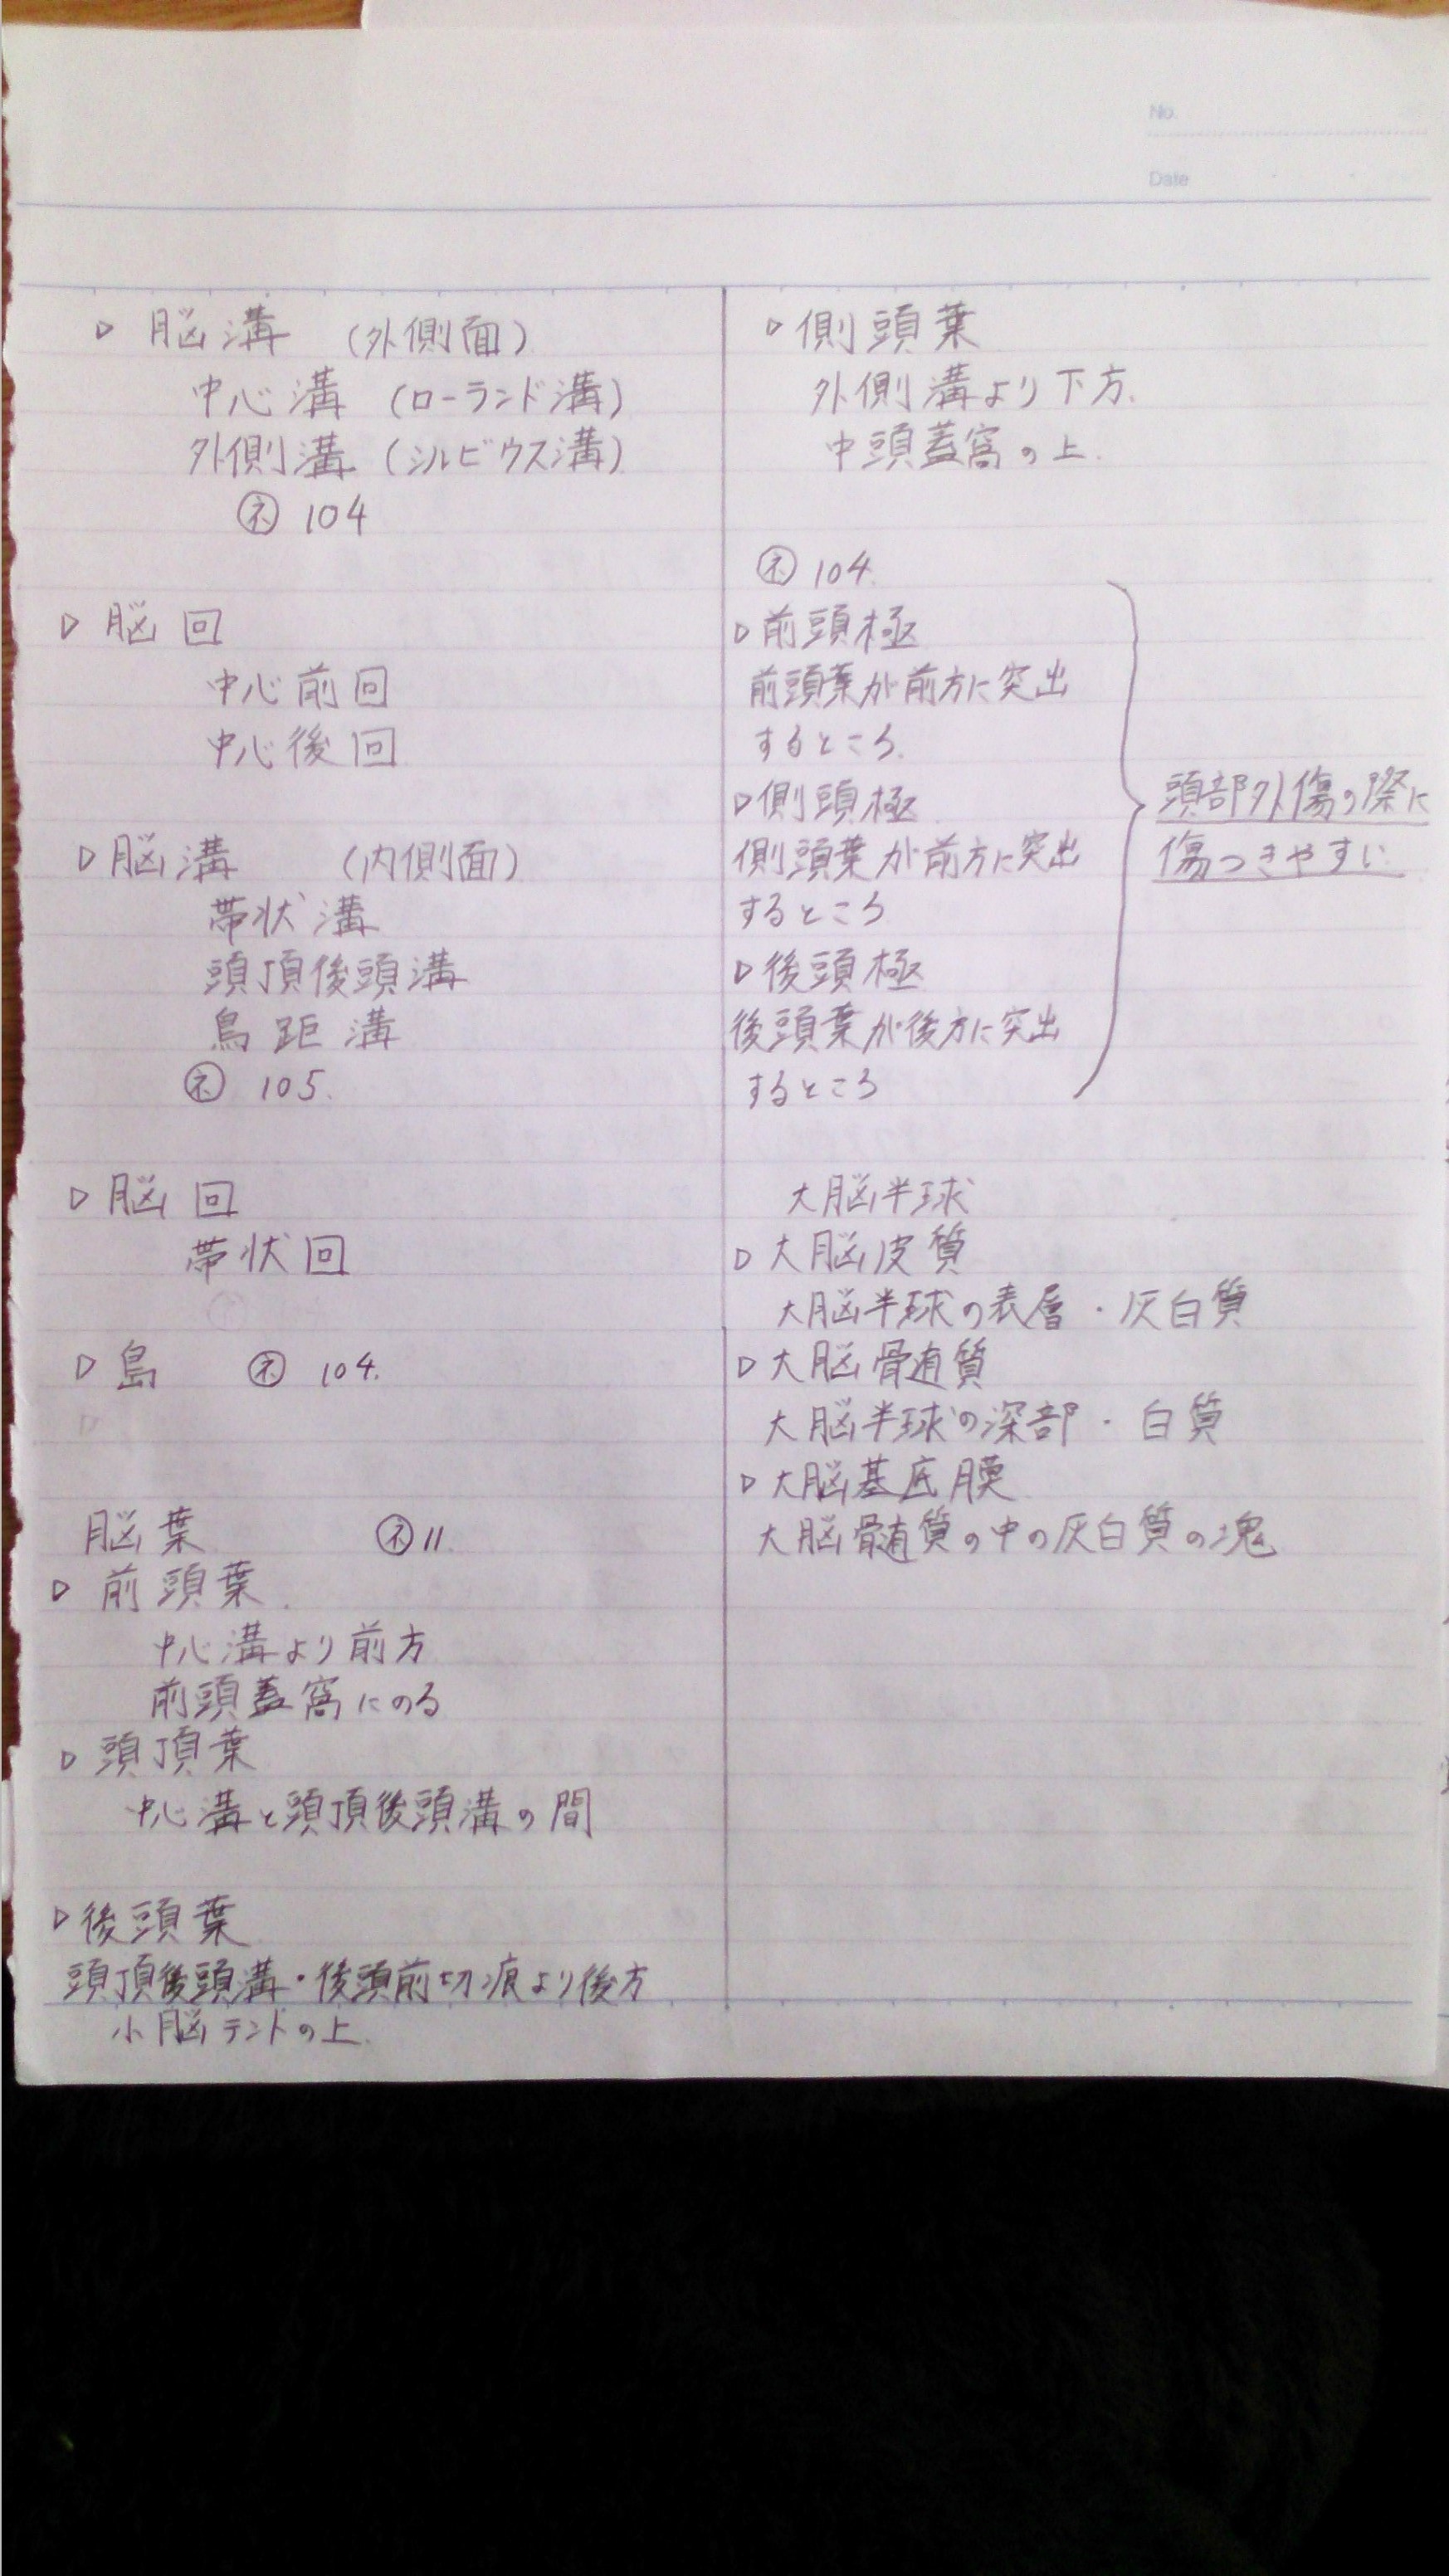 No.
Date
▷ 脳溝 (外側面)
中心溝 (ローランド溝)
外側溝 (シルビウス溝)
㋧ 104
▷ 脳回
中心前回
中心後回
▷ 脳溝 (内側面)
帯状溝
頭頂後頭溝
鳥距溝
㋧ 105.
▷ 脳回
帯状回
▷ 島 ㋧ 104.
脳葉 ㋧ 11.
▷ 前頭葉.
中心溝より前方
前頭蓋窩にのる
▷ 頭頂葉
中心溝と頭頂後頭溝の間
▷ 後頭葉
頭頂後頭溝・後頭前切痕より後方
小脳テントの上.
▷ 側頭葉
外側溝より下方.
中頭蓋窩の上.
㋧ 104.
▷ 前頭極
前頭葉が前方に突出
するところ.
▷ 側頭極
側頭葉が前方に突出
するところ
▷ 後頭極
後頭葉が後方に突出
するところ
頭部外傷の際に
傷つきやすい
大脳半球
▷ 大脳皮質
大脳半球の表層・灰白質
▷ 大脳髄質
大脳半球の深部・白質
▷ 大脳基底膜
大脳髄質の中の灰白質の塊